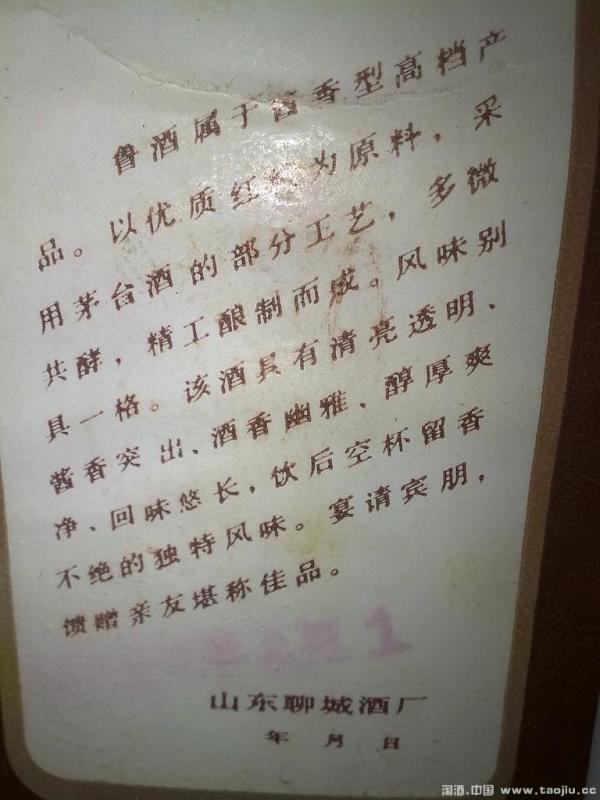 鲁酒属于酱香型高档产
品。以优质红粮为原料，采
用茅台酒的部分工艺，多微
共酵，精工酿制而成。风味别
具一格。该酒具有清亮透明、
酱香突出、酒香幽雅、醇厚爽
净、回味悠长，饮后空杯留香
不绝的独特风味。宴请宾朋，
馈赠亲友堪称佳品。
1
山东聊城酒厂
年 月 日
淘酒.中国 www.taojiu.cc